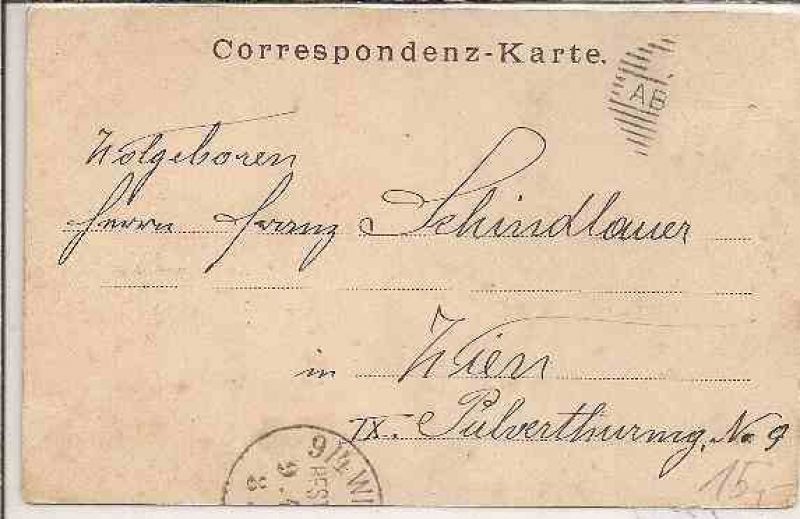 Correspondenz-Karte.
AB
Wolgeboren
Herrn Franz Schindlauer
in Wien
IX. Pulverthurmg. No 9
9/4 WI
BEST
9.
8.
15,-